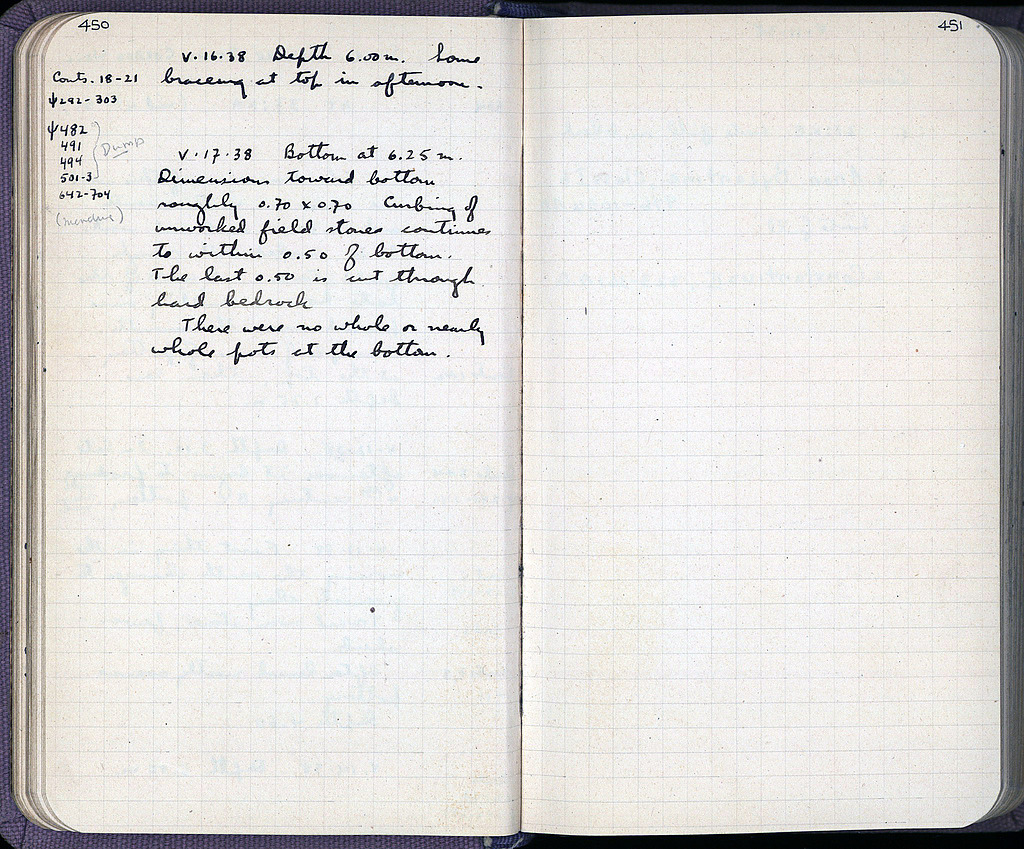 450
V·16·38 Depth 6.00 m. Some
Conts. 18-21 bracing at top in afternoon.
ψ292-303
ψ482
491
494
501-3
642-704
Dump
V·17·38 Bottom at 6.25 m.
Dimensions toward bottom
roughly 0.70 x 0.70 Curbing of
unworked field stones continues
to within 0.50 of bottom.
The last 0.50 is cut through
hard bedrock
There were no whole or nearly
whole pots at the bottom.
451